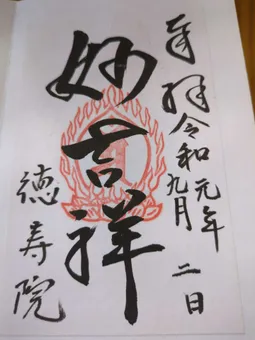 奉拝
令和元年
九月二日
妙吉祥
徳寿院